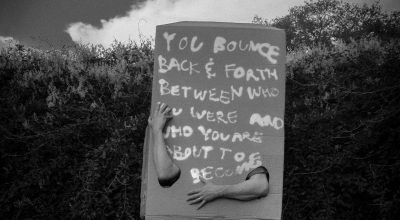 YOU BOUNCE
BACK & FORTH
BETWEEN WHO
YOU WERE AND
WHO YOU ARE
ABOUT TO
BECOME